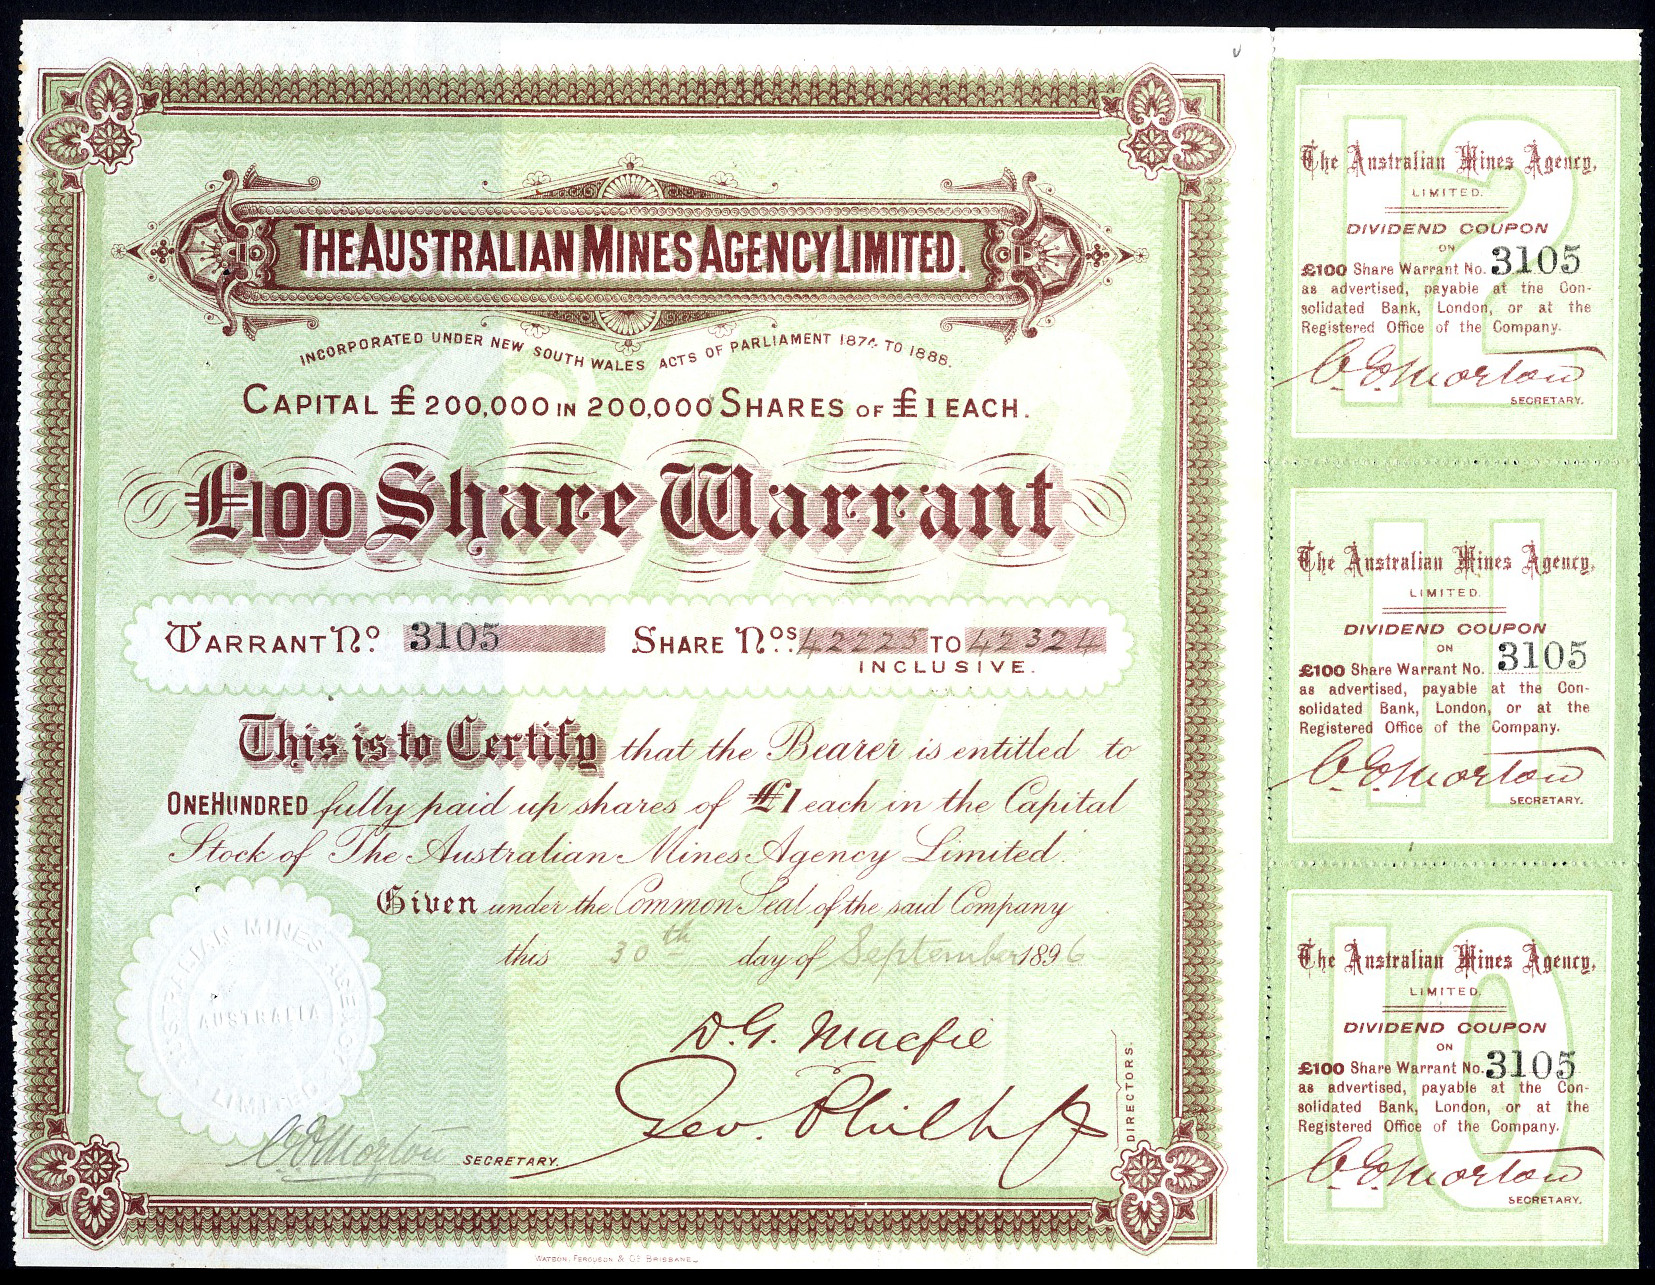 THE AUSTRALIAN MINES AGENCY LIMITED.
INCORPORATED UNDER NEW SOUTH WALES ACTS OF PARLIAMENT 1874 TO 1888.
CAPITAL £200,000 IN 200,000 SHARES OF £1 EACH.
£100 Share Warrant
WARRANT No. 3105 SHARE Nos. 42225 TO 42324
INCLUSIVE.
This is to Certify that the Bearer is entitled to
ONE HUNDRED fully paid up shares of £1 each in the Capital
Stock of The Australian Mines Agency Limited.
Given under the Common Seal of the said Company
this 30th day of September 1896
D. G. Macfie
Geo.
DIRECTORS.
C E Morton SECRETARY.
AUSTRALIAN MINES AGENCY
AUSTRALIA
LIMITED
WATSON, FERGUSON & CO. BRISBANE.
12
The Australian Mines Agency,
LIMITED.
DIVIDEND COUPON
ON
£100 Share Warrant No. 3105
as advertised, payable at the Con-
solidated Bank, London, or at the
Registered Office of the Company.
C. E. Morton
SECRETARY.
11
The Australian Mines Agency,
LIMITED.
DIVIDEND COUPON
ON
£100 Share Warrant No. 3105
as advertised, payable at the Con-
solidated Bank, London, or at the
Registered Office of the Company.
C. E. Morton
SECRETARY.
10
The Australian Mines Agency,
LIMITED.
DIVIDEND COUPON
ON
£100 Share Warrant No. 3105
as advertised, payable at the Con-
solidated Bank, London, or at the
Registered Office of the Company.
C. E. Morton
SECRETARY.